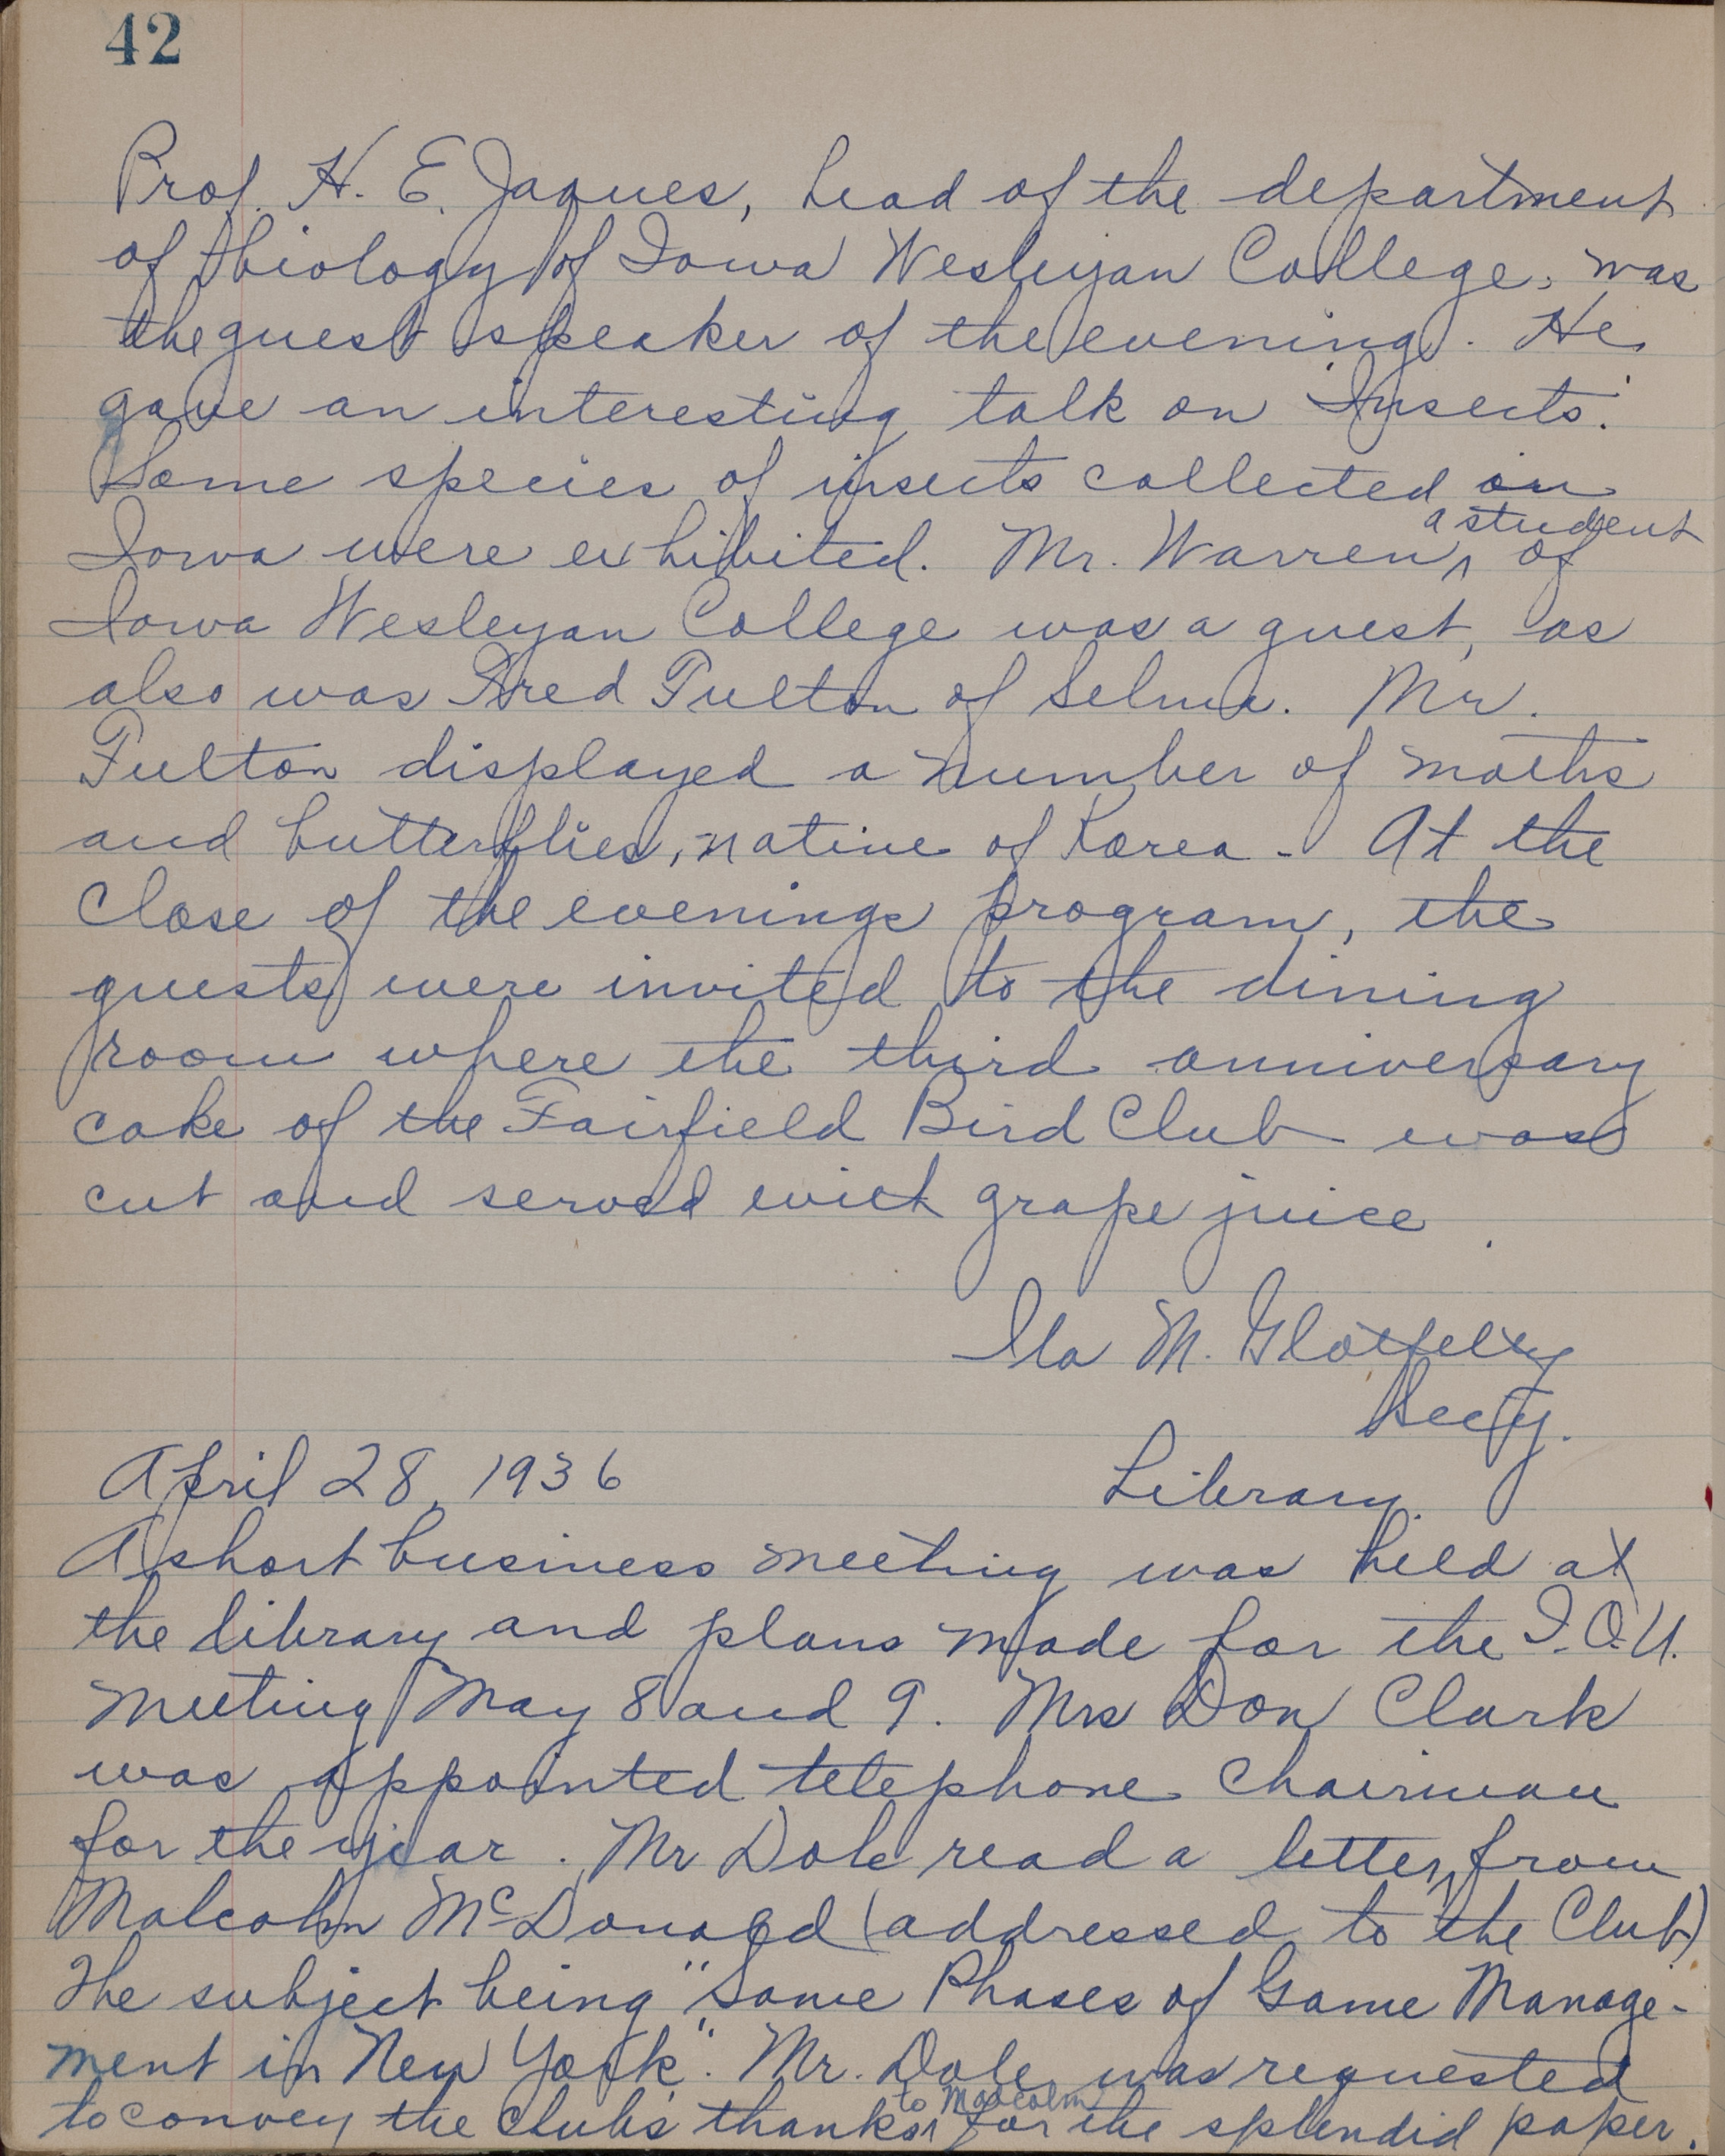 42
Prof. H. E. Jaques, head of the department
of biology of Iowa Wesleyan College, was
the guest speaker of the evening. He
gave an interesting talk on "Insects."
Some species of insects collected in
Iowa were exhibited. Mr. Warren, a student of
Iowa Wesleyan College was a guest, as
also was Fred Fulton of Selma. Mr.
Fulton displayed a number of moths
and butterflies, native of Korea - At the
close of the evenings program, the
guests were invited to the dining
room where the third anniversary
cake of the Fairfield Bird Club was
cut and served with grape juice.
Ila M. Glotfelty
Secy.
April 28, 1936 Library.
A short business meeting was held at
the library and plans made for the I.O.U.
meeting May 8 and 9. Mrs Don Clark
was appointed telephone chairman
for the year. Mr Dole read a letter from
Malcolm McDonald (addressed to the Club)
The subject being "Some Phases of Game Manage-
ment in New York". Mr. Dole was requested
to convey the clubs thanks to Malcolm for the splendid paper.